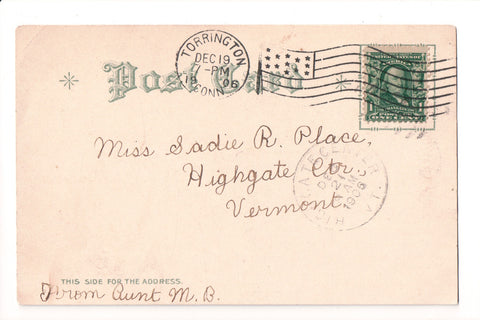 TORRINGTON
DEC 19
7-PM
'06
CONN.
Post Card
ONE CENT
Miss Sadie R. Place,
Highgate Ctr.
Vermont.
HIGHGATE CENTER
DEC
21
AM
1906
THIS SIDE FOR THE ADDRESS.
From Aunt M. B.